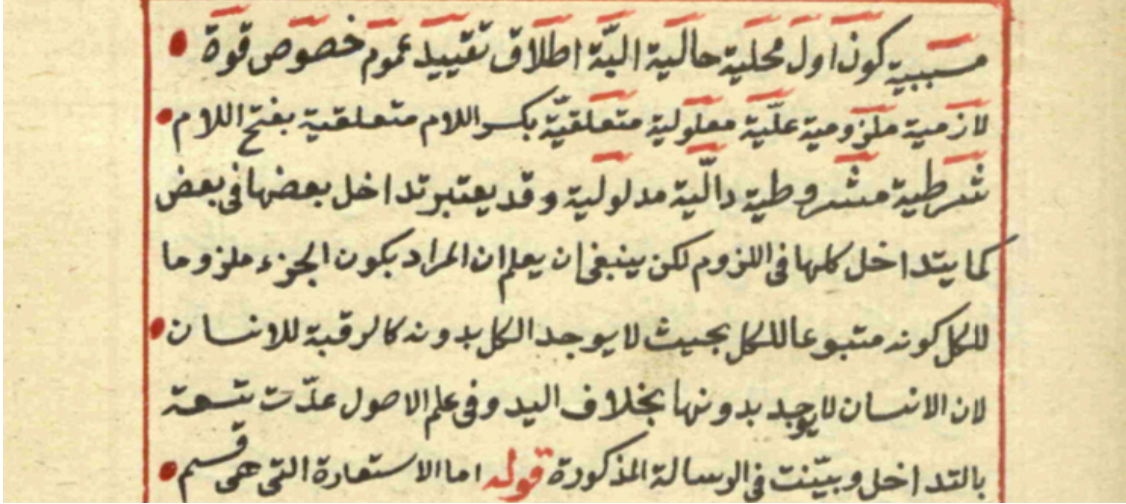 مسببية كون اول محلية حالية اليّة اطلاق تقييد عموم خصوص قوة
لازمية ملزومية علّية معلولية متعلقيّة بكسر اللام متعلقية بفتح اللام
شرطية مشروطية دالّية مدلولية وقد يعتبر تداخل بعضها فى بعض
كما يتداخل كلها فى اللزوم لكن ينبغى ان يعلم ان المراد بكون الجزء ملزوما
للكل كونه متبوعا للكل بحيث لا يوجد الكل بدونه كالرقبة للانسان
لان الانسان لا يوجد بدونها بخلاف اليد وفى علم الاصول عدّت تسعة
بالتداخل وبيّنت فى الرسالة المذكورة قوله اما الاستعارة التى هى قسم